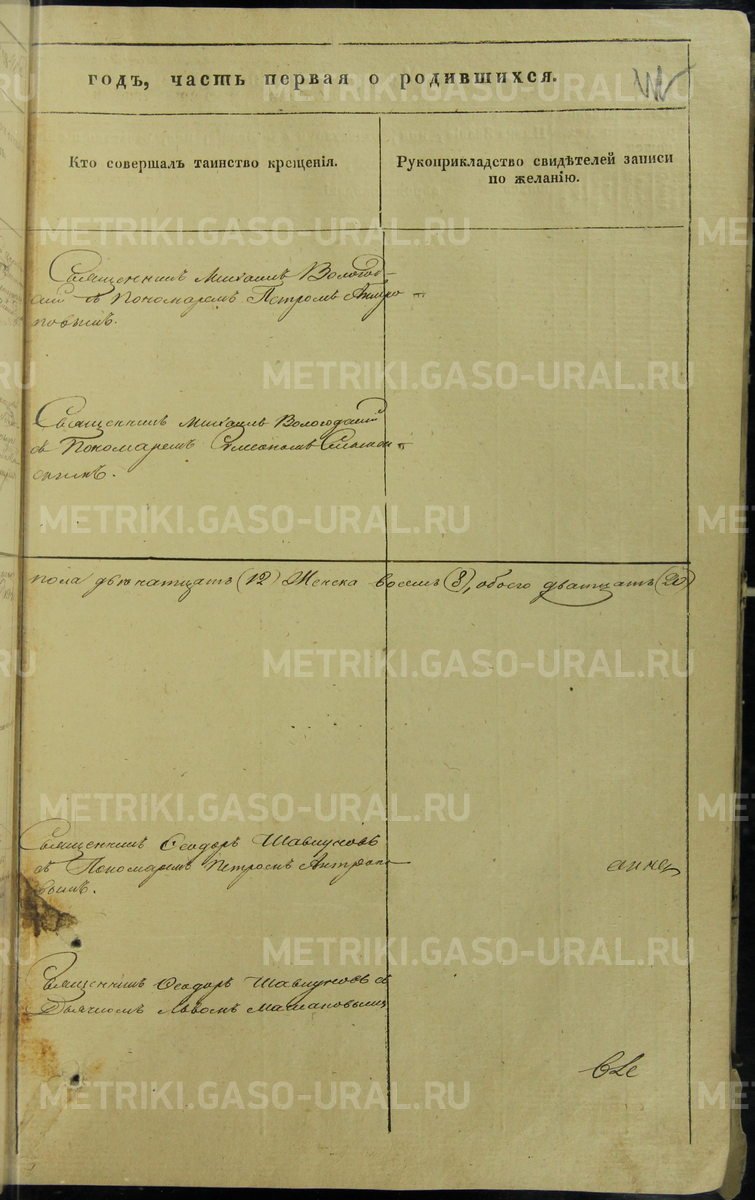 годъ, часть первая о родившихся.
Кто совершалъ таинство крещенія.
Рукоприкладство свидѣтелей записи
по желанію.
Священникъ Михаилъ Вологод-
скій съ Пономаремъ Петромъ Антро
повымъ.
Священникъ Михаилъ Вологодскій
съ Пономаремъ
пола двенатцать (12) Женска восемь (8), обоего дватцать (20)
Священникъ Ѳеодоръ Шавкуновъ
съ Пономаремъ Петромъ Антропо
вымъ.
Священникъ Ѳеодоръ Шавкуновъ съ
Дьячкомъ Львомъ
METRIKI.GASO-URAL.RU